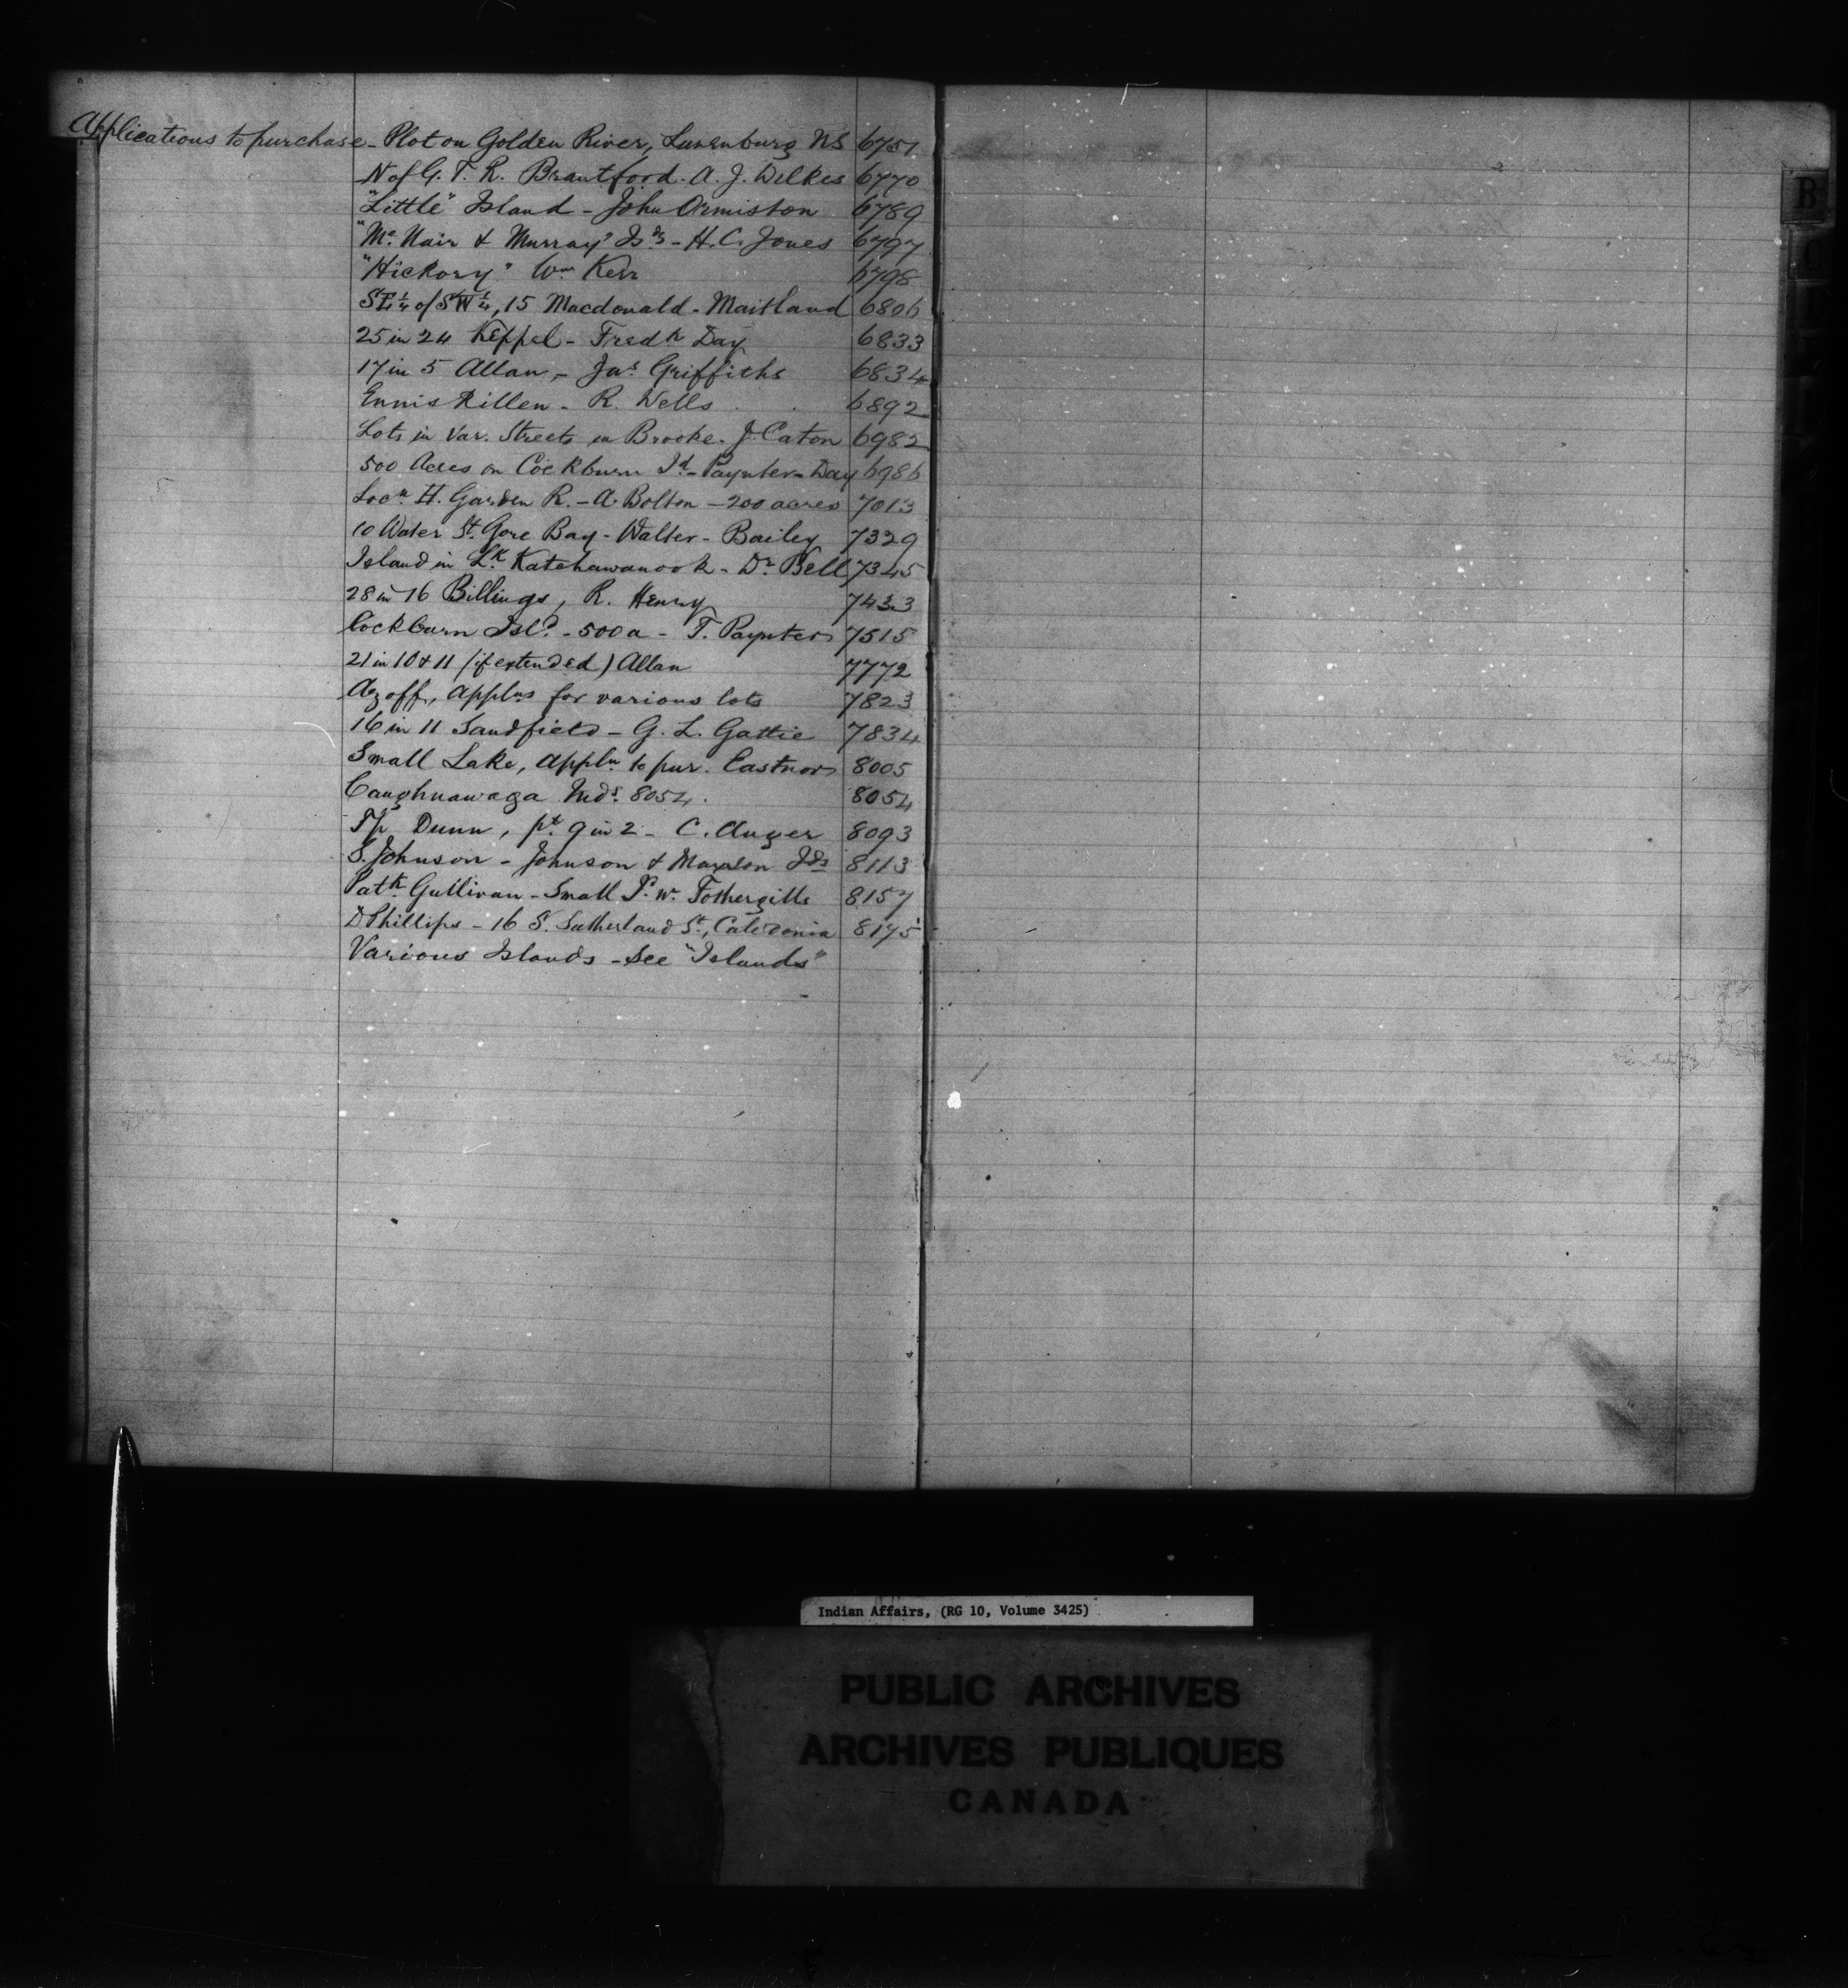 Applications to purchase - Plot on Golden River, Lunenburg NS 6751
N of G. T. R. Brantford. A. J. Wilkes 6770
"Little" Island - John Ormiston 6789
"Mc Nair & Murray" Isds - H. C. Jones 6797
"Hickory" Wm Kerr 6798
SE¼ of SW¼, 15 Macdonald - Maitland 6806
25 in 24 Keppel - Fredk Day 6833
17 in 5 Allan, - Jas Griffiths 6834
Enniskillen - R. Wells 6892
Lots in Var. Streets in Brooke - J. Caton 6982
500 Acres on Cockburn Id - Paynter - Day 6986
Locn H. Garden R. - A. Bolton - 200 acres 7013
10 Water St. Gore Bay - Walter - Bailey 7329
Island in Lk Katchawanook - Dr Bell 7345
28 in 16 Billings, R. Henry 7433
Cockburn Isld - 500 a - T. Paynter 7515
21 in 10 & 11 (if extended) Allan 7772
Azoff, applns for various lots 7823
16 in 11 Sandfield - G. L. Gattie 7834
Small Lake, appln to pur. Eastnor 8005
Caughnawaga Inds. 8054. 8054
Tp Dunn, pt. 9 in 2 - C. Auger 8093
S. Johnson - Johnson & Ids 8113
Patk Gullivan - Small Fothergills 8157
D Phillips - 16 S. Sutherland St., Caledonia 8175
Various Islands - See "Islands"
B
C
Indian Affairs, (RG 10, Volume 3425)
PUBLIC ARCHIVES
ARCHIVES PUBLIQUES
CANADA